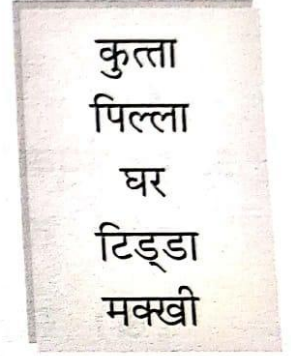 कुत्ता
पिल्ला
घर
टिड्डा
मक्खी